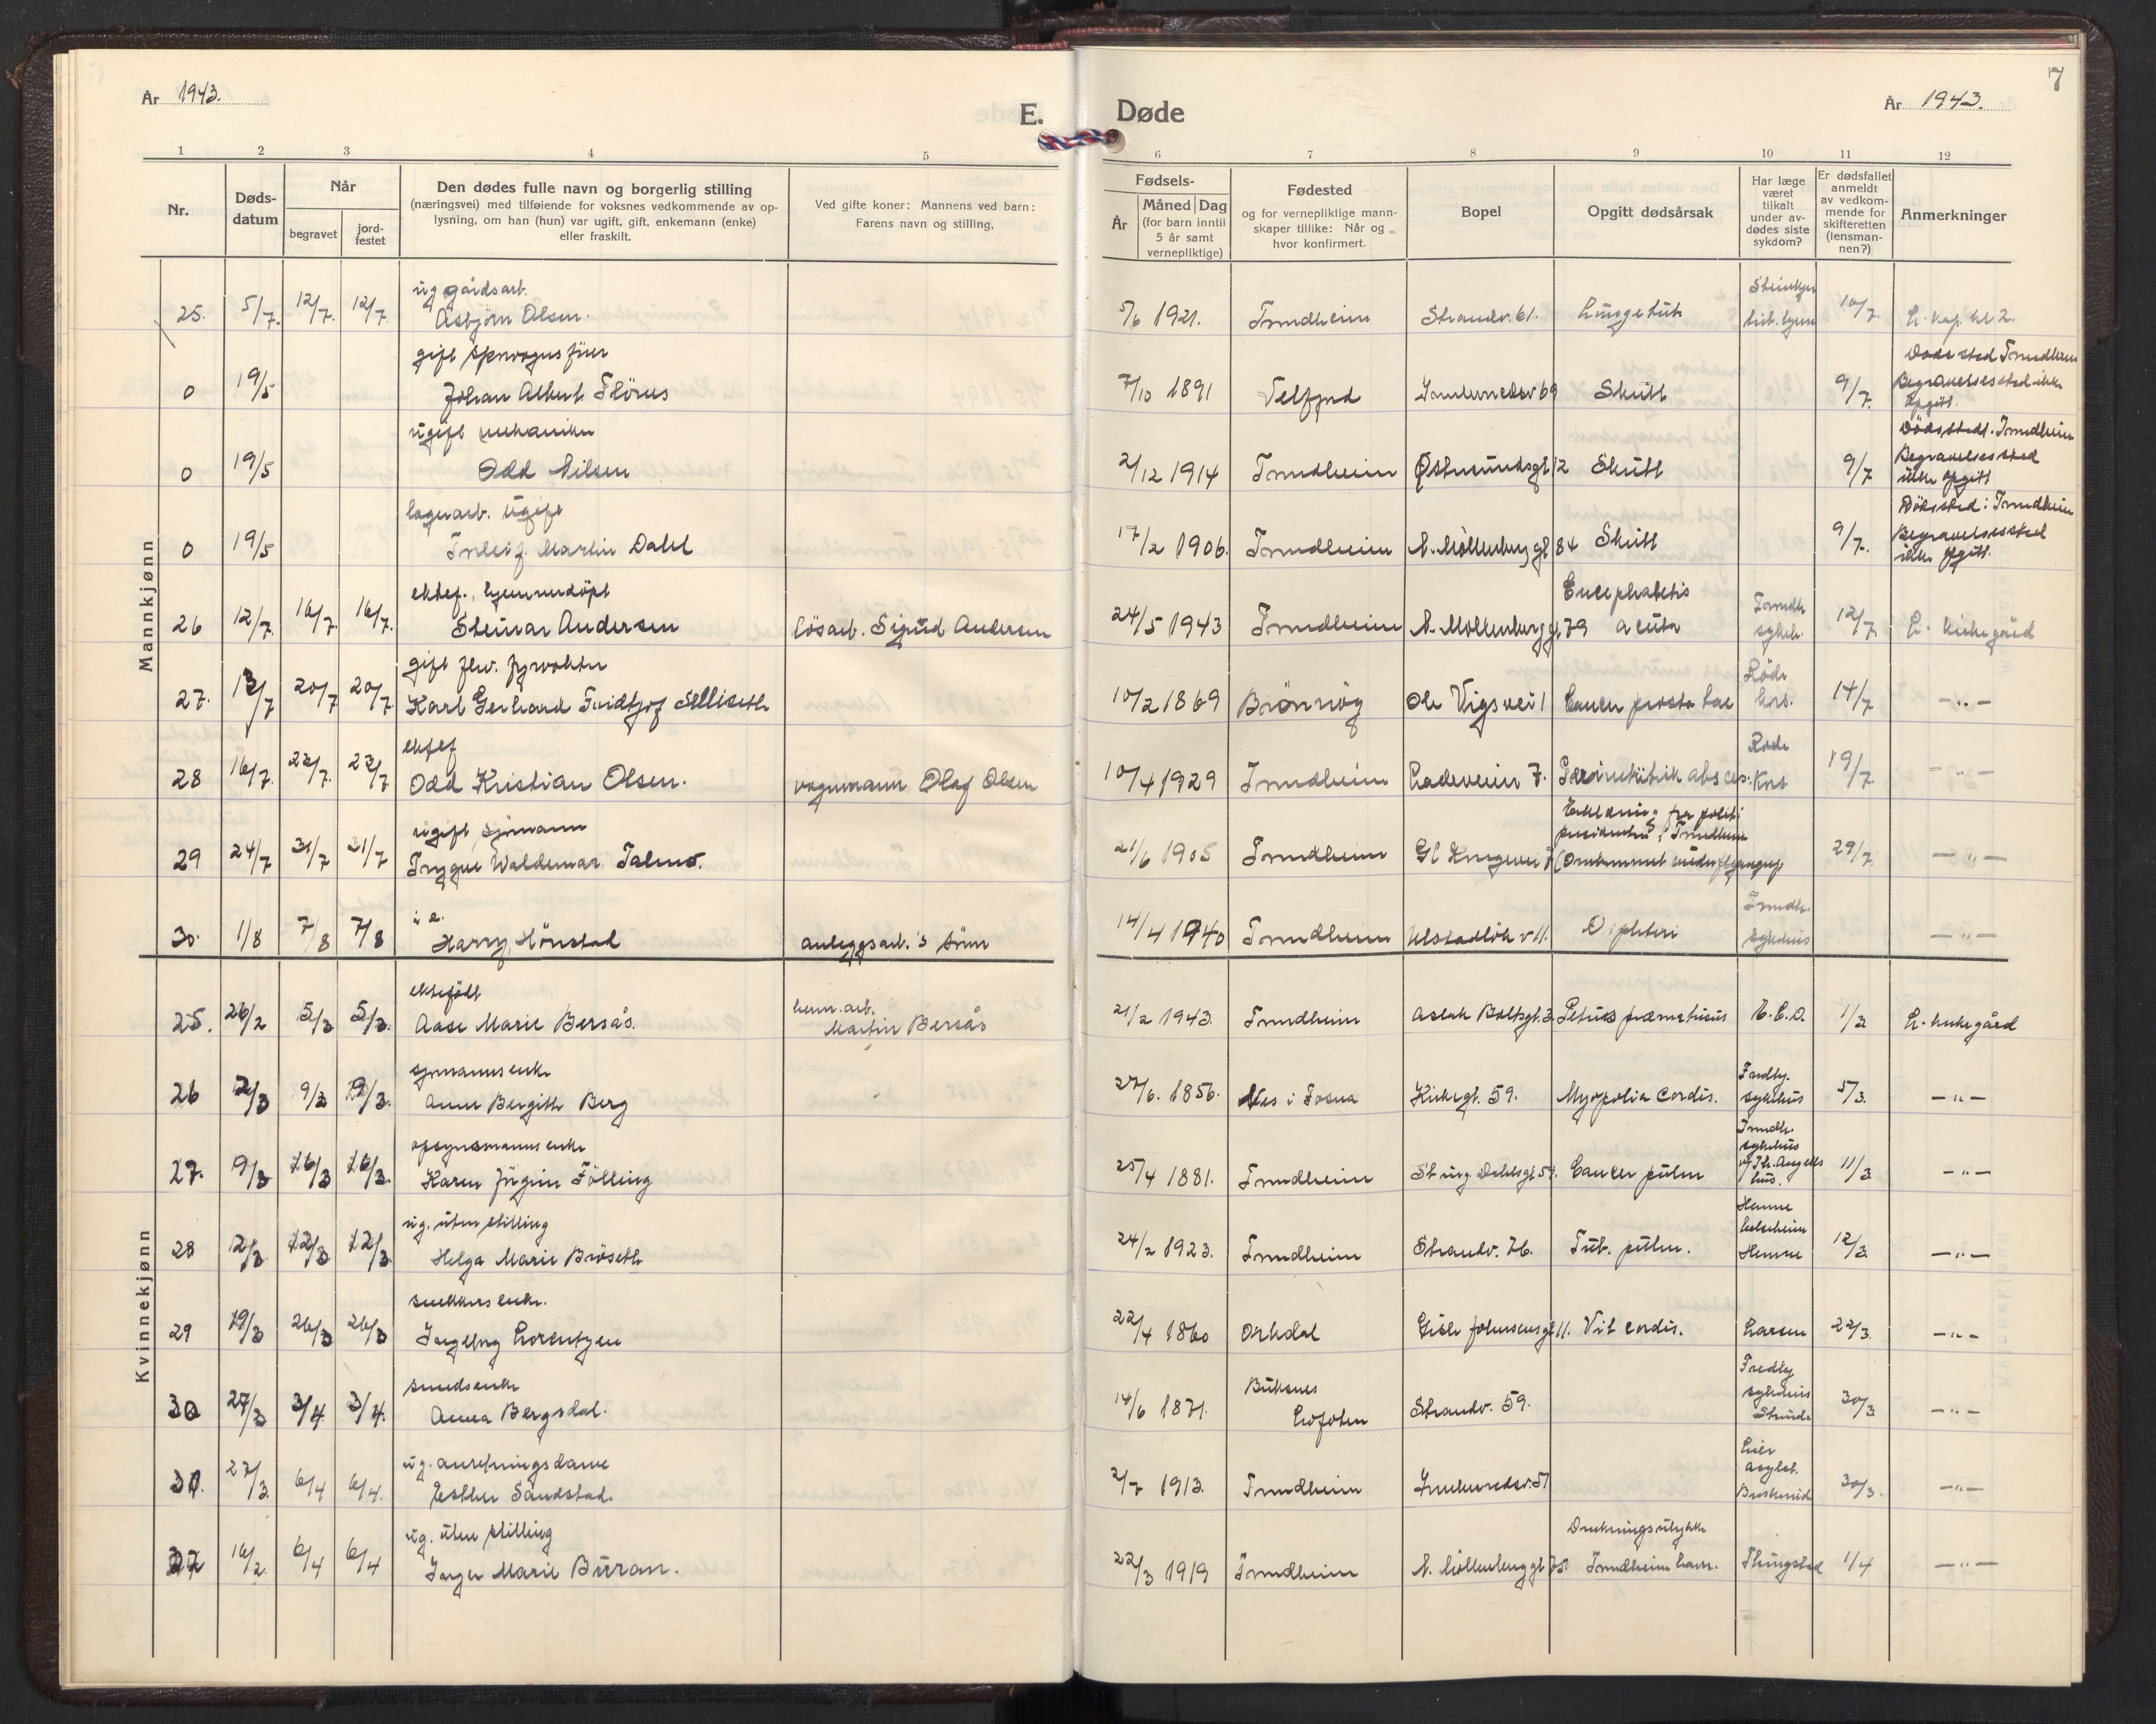 År 1943.
E.
1 2 3 4 5
Nr.
Døds-
datum
Når
begravet
jord-
festet
Den dødes fulle navn og borgerlig stilling
(næringsvei) med tilføiende for voksnes vedkommende av op-
lysning, om han (hun) var ugift, gift, enkemann (enke)
eller fraskilt.
Ved gifte koner: Mannens ved barn:
Farens navn og stilling,
Mannkjønn
ug gårdsarb.
25. 5/7. 12/7. 12/7. Asbjørn Olsen.
gift
0 19/5 Johan Albert Flörnes
ugift mekaniker
0 19/5 Odd Nilsen
lagerarb. ugift
0 19/5 Torleif Martin Dahl
ektef., hjemmedöpt
26 12/7. 16/7. 16/7. Steinar Andersen lösarb. Sigurd Andersen
gift fhv. fyrvokter
27. 13/7 20/7 20/7. Karl Gerhard Fridtjof Selliseth
ektef
28 16/7. 22/7. 22/7 Odd Kristian Olsen. vognmann Olaf Olsen
ugift sjömann
29 24/7 31/7 31/7 Trygve Waldemar Talmo.
30. 1/8 7/8 7/8 Harry Hönstad anleggsarb.'s sönn
Kvinnekjønn
ektefödt
25. 26/2 5/3 5/3. Aase Marie Bersås. Martin Bersås
sjömannsenke
26 2/3 9/3 9/3. Anne Bergith Berg
opsynsmannsenke
27. 9/3 16/3 16/3. Karen Jörgine Fölling
ug. uten stilling
28 12/3 12/3 Helga Marie Bröseth
snekkersenke.
29 19/3 26/3 26/3 Ingeborg Lorentzen
smedsenke
30 27/3 3/4 3/4. Anna Bergsdal.
ug. anretningsdame
31. 27/3. 6/4 6/4. Esther Sandstad.
ug. uten stilling
32 16/2. 6/4 6/4. Inger Marie Buran.
7
Døde
År 1943.
6 7 8 9 10 11 12
Fødsels-
År
Måned Dag
(for barn inntil
5 år samt
vernepliktige)
Fødested
og for vernepliktige mann-
skaper tillike: Når og
hvor konfirmert.
Bopel
Opgitt dødsårsak
Har læge
været
tilkalt
under av-
dødes siste
sykdom?
Er dødsfallet
anmeldt
av vedkom-
mende for
skifteretten
(lensman-
nen?)
Anmerkninger
Steinkjer
5/6 1921. Trondheim Strandv. 61. Lungetub. tub. hjem 10/7. L. kap. kl 2.
Dödssted Trondheim
7/10 1891 Velfjord Innherredsv 69 Skutt 9/7. Begravelsessted ikke
opgitt.
Dödssted. Trondheim
2/12 1914 Trondheim Östersundsgt 12 Skutt 9/7 Begravelsessted
ikke opgitt
Dödssted: Trondheim
17/2 1906. Trondheim N. Möllenberggt 84 Skutt 9/7. Begravelsessted
ikke opgitt.
Encephalitis
24/5 1943 Trondheim N. Möllenberggt 79 acuta Trondh. sykeh. 12/7 L. kirkegård
10/2 1869 Brönnöy Ole Vigsvei 1 Cancer prostatae Röde kors. 14/7 — „ —
10/4 1929 Trondheim Ladeveien 7. absces. Röde Kors 19/7. — „ —
Erklæring fra politi
presidenten i Trondheim
21/6 1905 Trondheim Gl Kongevei (Omkommet 29/7. — „ —
14/4 1940 Trondheim Ulstadlökv 11. Difteri Trondh. sykehus — „ —
21/2 1943. Trondheim Aslak Boltsgt. Fetus præmaturus E. C. D. 1/3 L. kirkegård
27/6. 1856. Nes i Fosna Kirkegt. 59. cordis. Fredly. sykehus 5/3. — „ —
Trondh.
sykehus
25/4 1881. Trondheim Cancer pulm Th. Angells hus. 11/3 — „ —
Hemne
24/2 1923. Trondheim Strandv. 76. Tub. pulm. Hemne 12/3. — „ —
22/4 1860 Orkdal Gisle Johnsensgt 11. Vit cordis. Larsen 22/3. — „ —
Buksnes Fredly
14/6 1871. Lofoten Strandv. 59. sykehus Strinda 30/3 — „ —
Lier
asylet.
2/7 1913. Trondheim Innherredsv. 51 Buskerud 30/3. — „ —
Drukningsulykke
22/3 1919 Trondheim N. Möllenberggt 75. Trondheim havn. Thingstad 1/4 — „ —